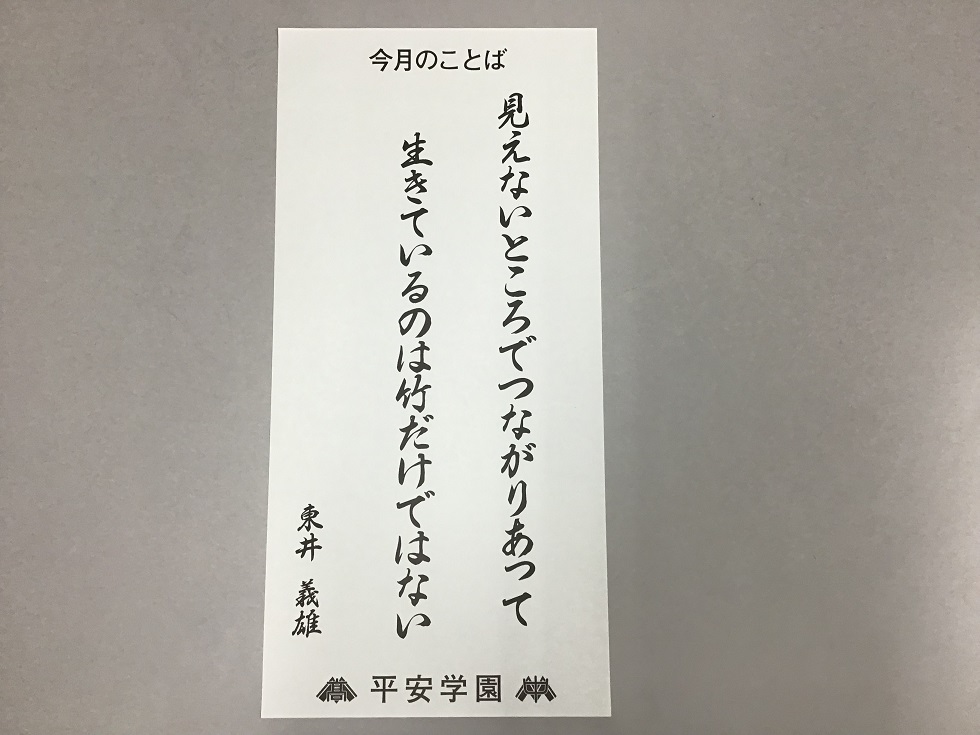 今月のことば
見えないところでつながりあって
生きているのは竹だけではない
東井 義雄
平安学園